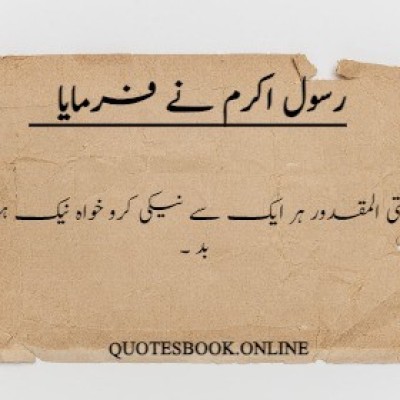 رسول اکرم نے فرمایا
المقدور ہر ایک سے نیکی کرو خواہ نیک
بد ۔
QUOTESBOOK.ONLINE